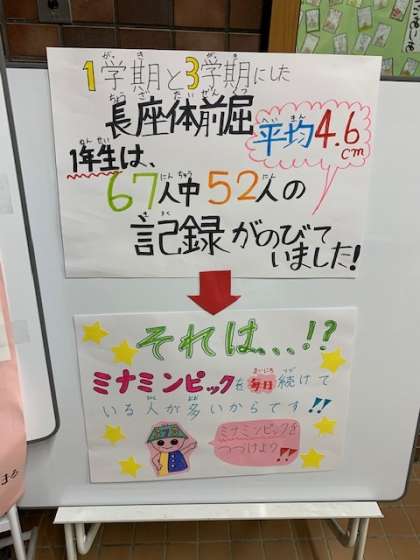 1学期と3学期にした
長座体前屈
平均4.6cm
1年生は、
67人中52人の
記録がのびて
いました!
それは、、、!?
ミナミンピックを毎日続けて
いる人が多いからです!!
ミナミンピックを
つづけよう!!